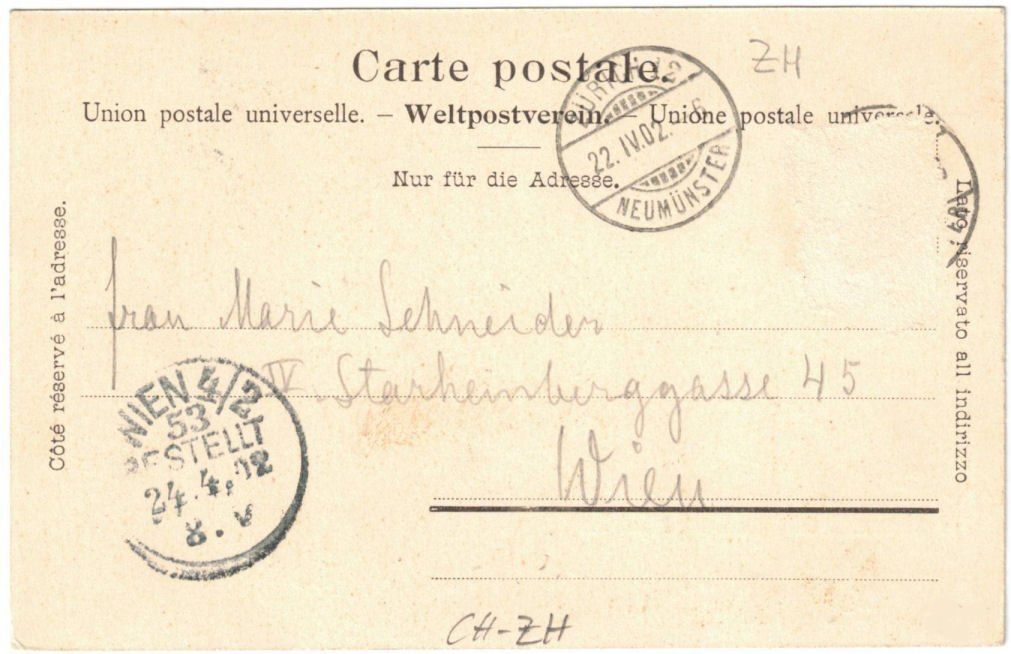 Carte postale.
ZH
Union postale universelle. – Weltpostverein. – Unione postale universale.
Nur für die Adresse.
ZÜRICH 12
22. IV. 02. 6
NEUMÜNSTER
Côté réservé à l'adresse.
Lato riservato all indirizzo
Frau Marie Schneider
IV. Starhemberggasse 45
Wien
WIEN 4/2
53
BESTELLT
24.4.02
8. V
CH-ZH